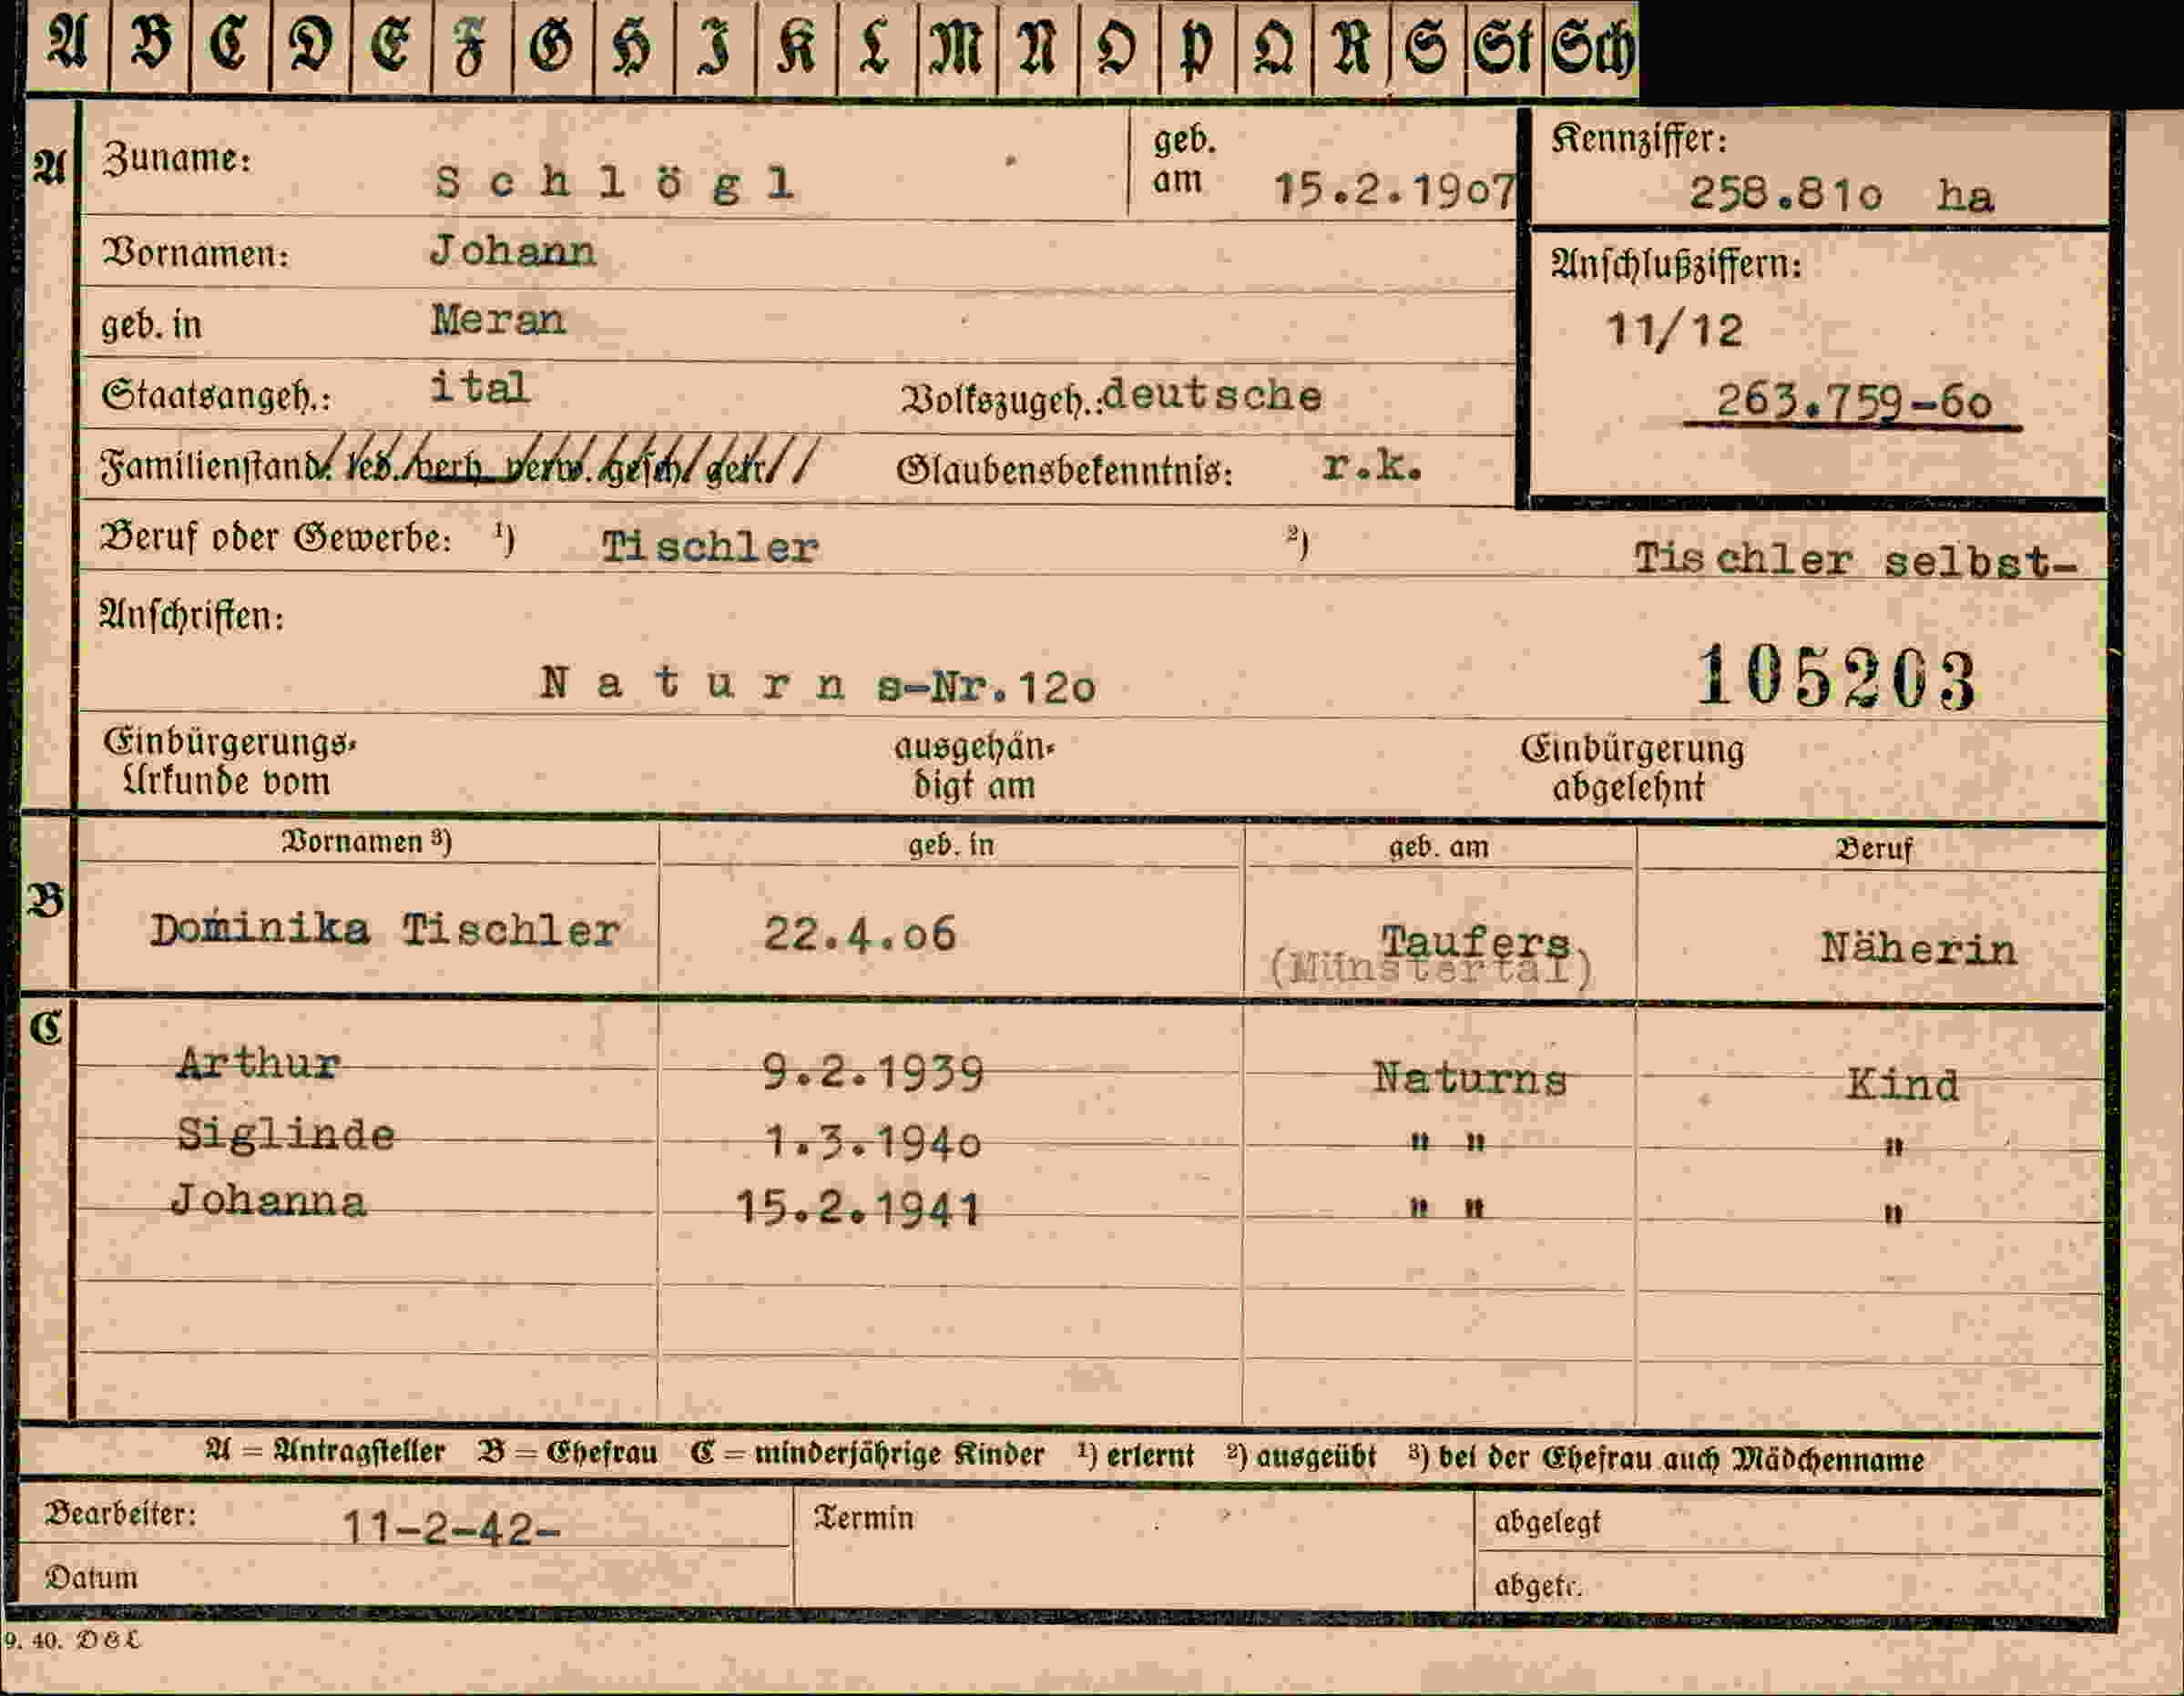 A B C D E F G H I K L M N O P Q R S St Sch
A Zuname: Schlögl geb. am 15.2.1907 Kennziffer: 258.810 ha
Vornamen: Johann
Anschlußziffern:
geb. in Meran 11/12
Staatsangeh.: ital Volkszugeh.: deutsche 263.759-60
Familienstand: led. verh. verw. gesch. getr. Glaubensbekenntnis: r.k.
Beruf oder Gewerbe: ¹) Tischler ²) Tischler selbst-
Anschriften:
Naturns-Nr.120 105203
Einbürgerungs- ausgehän- Einbürgerung
Urkunde vom digt am abgelehnt
Vornamen ³) geb. in geb. am Beruf
B Dominika Tischler 22.4.06 Taufers Näherin
(Münstertal)
C
Arthur 9.2.1939 Naturns Kind
Siglinde 1.3.1940 " " "
Johanna 15.2.1941 " " "
A = Antragsteller B = Ehefrau C = minderjährige Kinder ¹) erlernt ²) ausgeübt ³) bei der Ehefrau auch Mädchenname
Bearbeiter: 11-2-42- Termin abgelegt
Datum abgetr.
9. 40. D&L